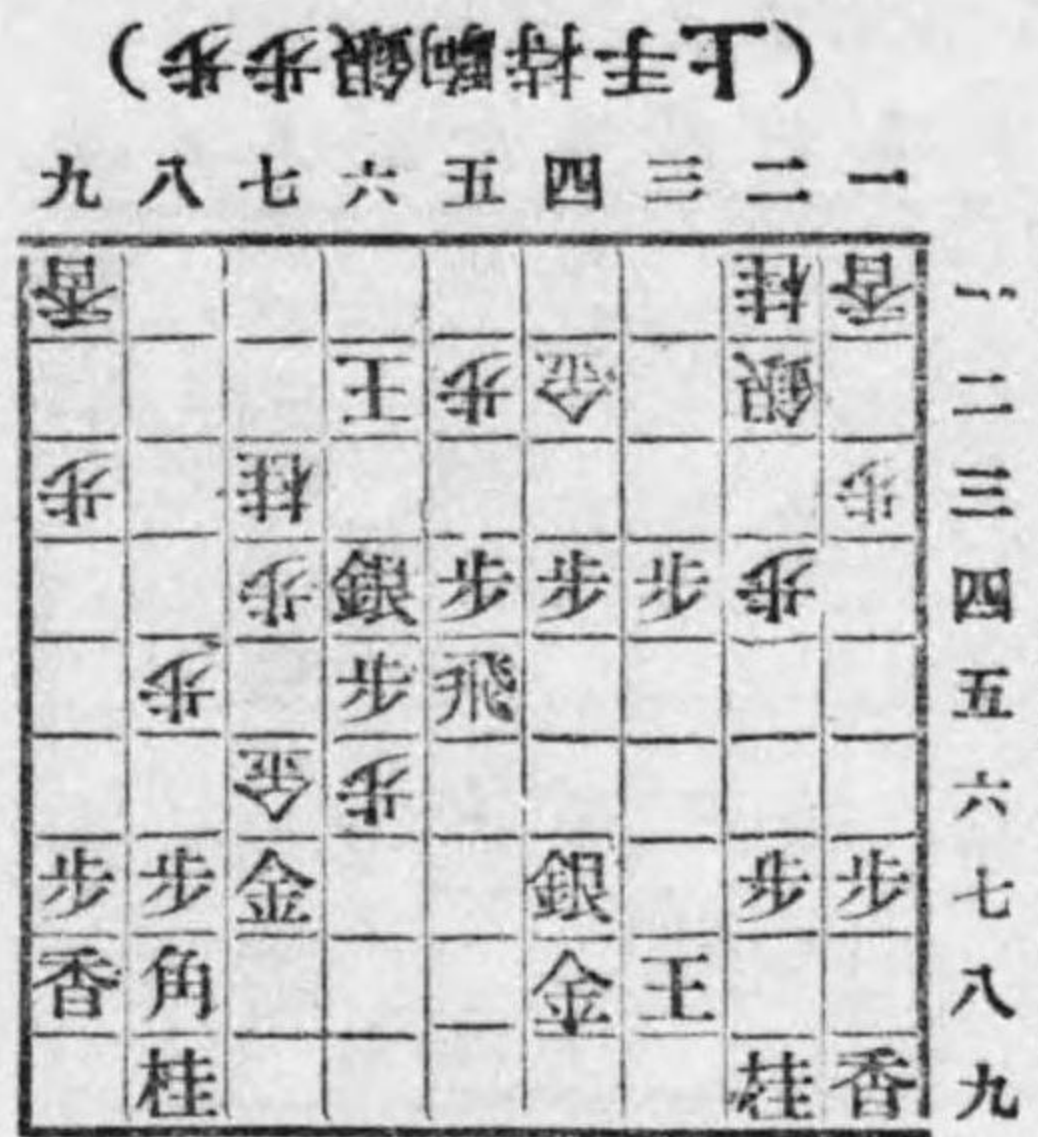 （上手持駒銀歩歩）
九 八 七 六 五 四 三 二 一
香 桂 香 一
王 歩 金 銀 二
歩 桂 歩 三
歩 銀 歩 歩 歩 歩 四
歩 歩 飛 五
金 歩 六
歩 歩 金 銀 歩 歩 七
香 角 金 王 八
桂 桂 香 九